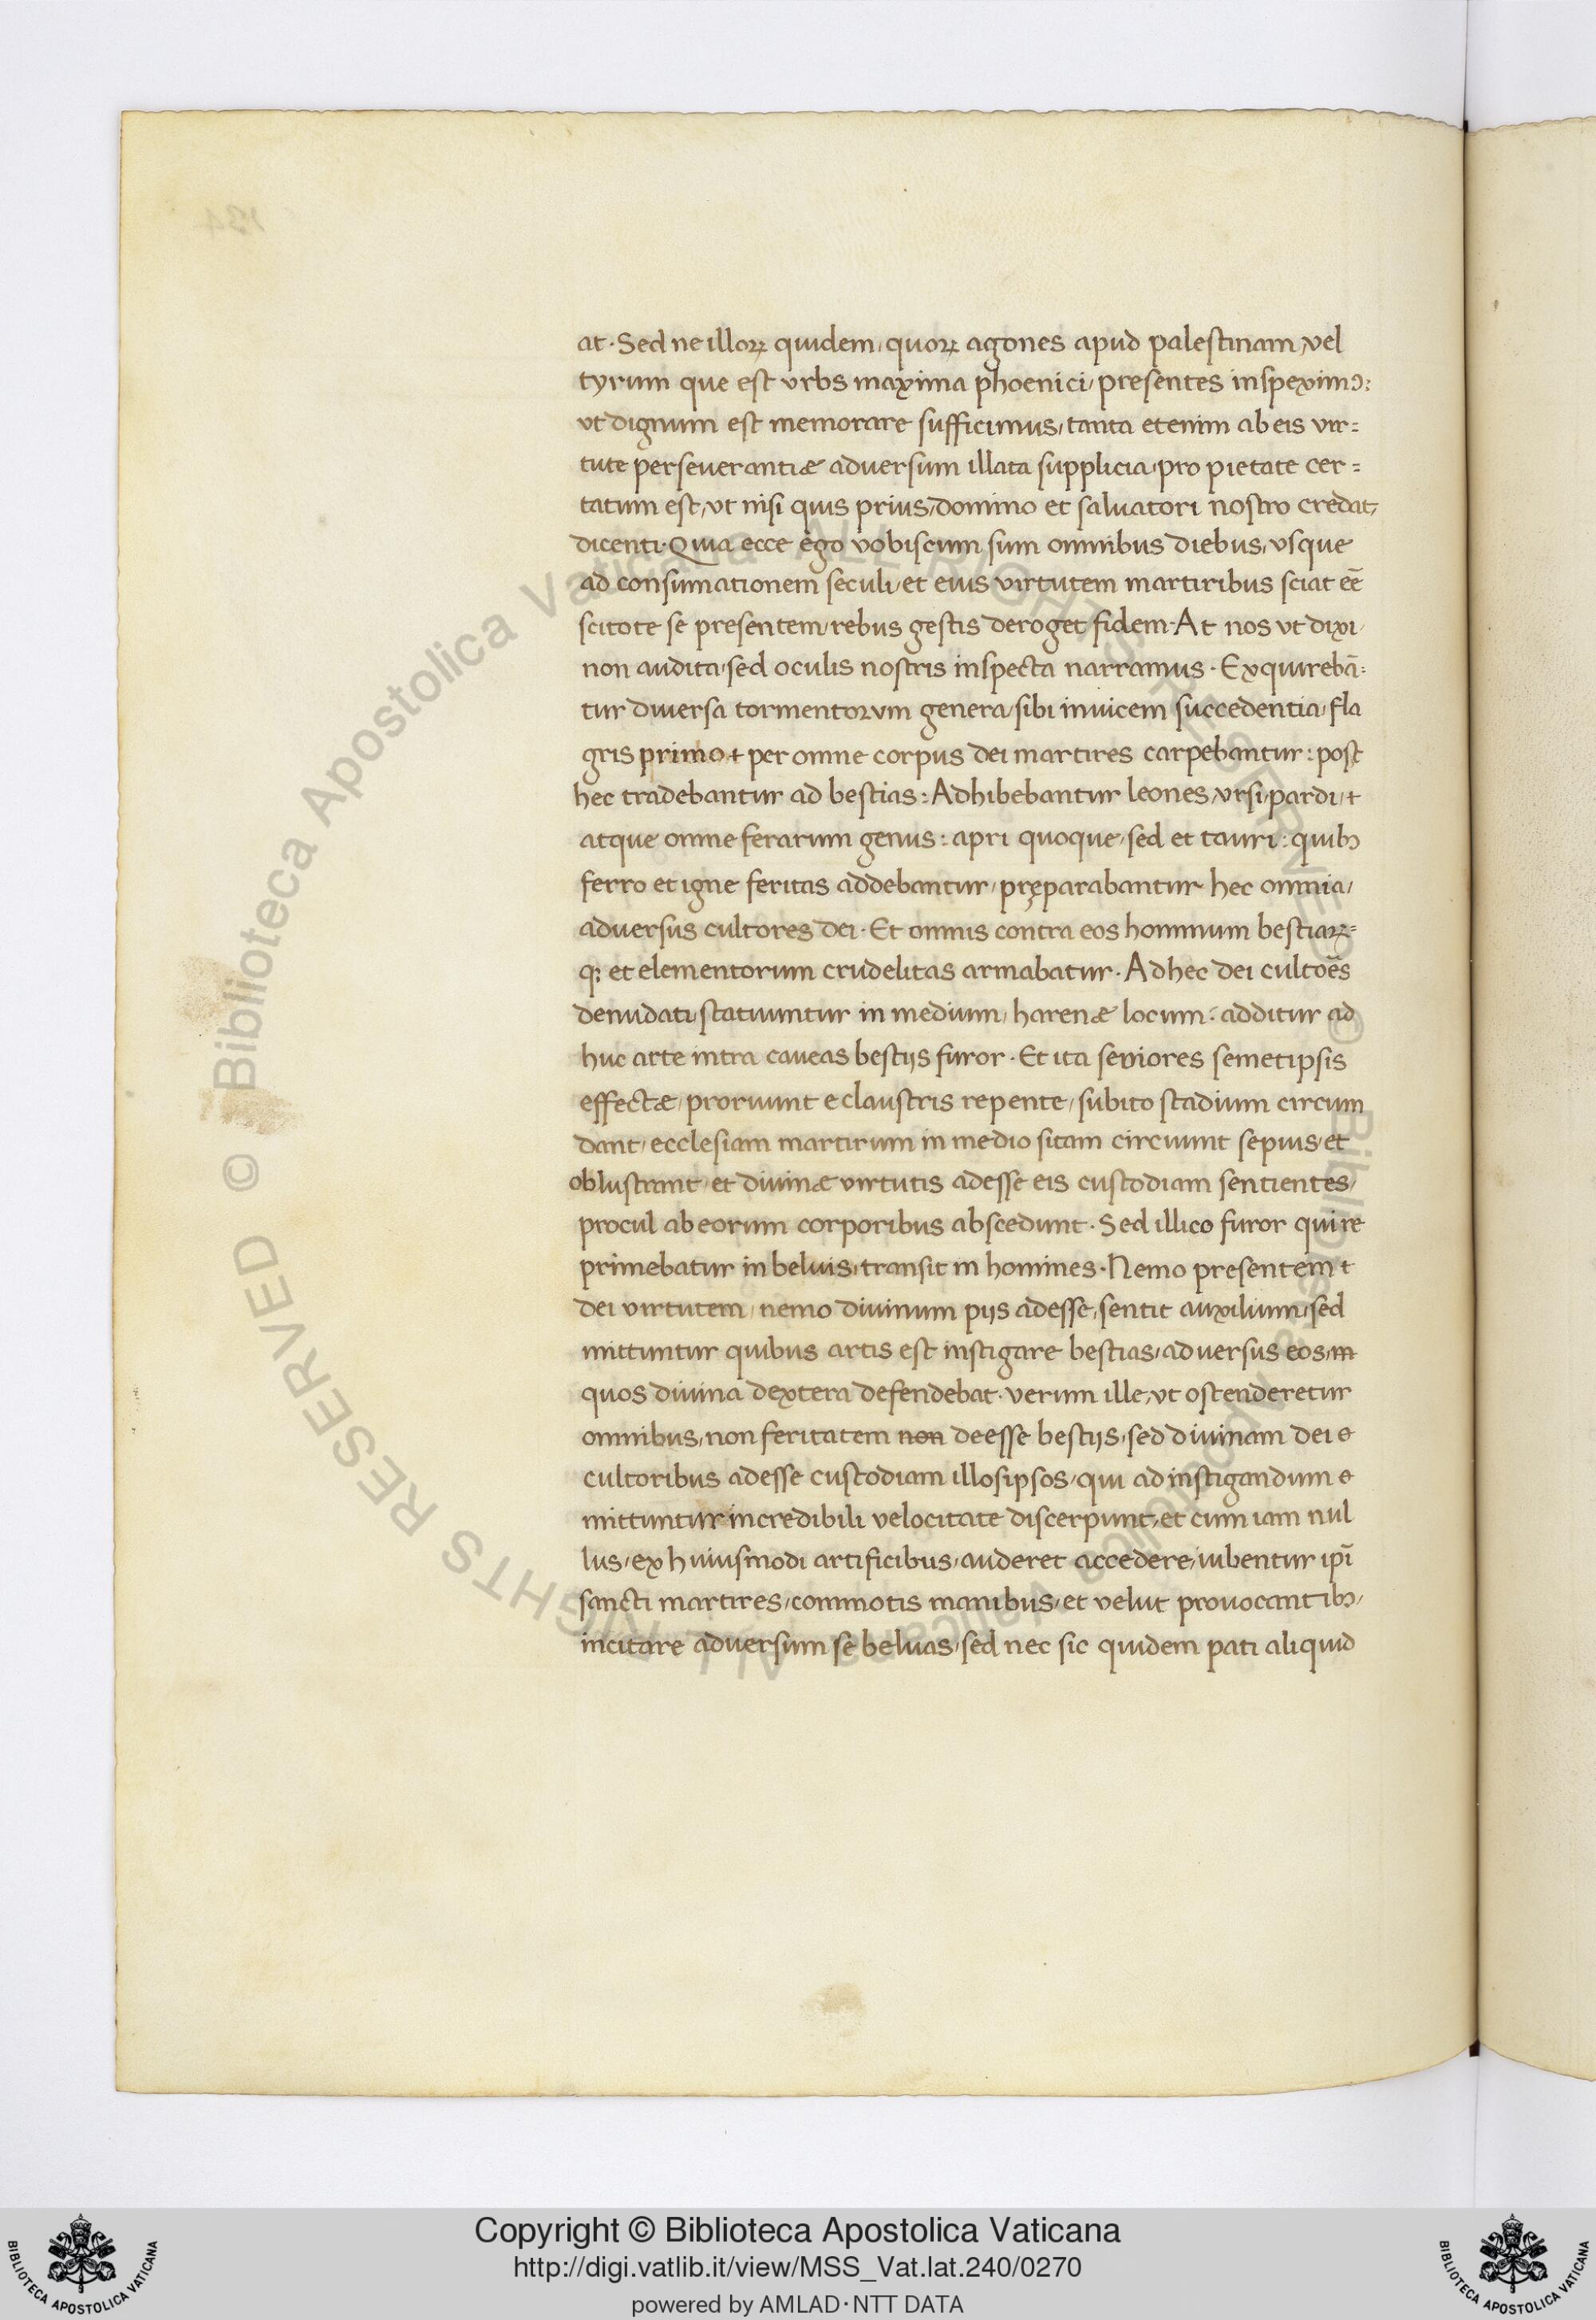 at · Sed ne illoꝝ quidem, quoꝝ agones apud palestinam, vel
tyrum que est vrbs maxima phoenici, presentes inspeximꝰ:
vt dignum est memorare sufficimus, tanta etenim ab eis vir=
tute perseuerantiæ aduersum illata supplicia, pro pietate cer=
tatum est, vt nisi quis prius, domino et saluatori nostro credat,
dicenti · Quia ecce ego vobiscum sum omnibus diebus, vsque
ad consumationem seculi, et eius virtutem martiribus sciat eē
scitote se presentem, rebus gestis deroget fidem · At nos vt dixi,
non audita, sed oculis nostris inspecta narramus · Exquirebā=
tur diuersa tormentorvm genera, sibi inuicem succedentia, fla
gris primo + per omne corpus dei martires carpebantur : post
hec tradebantur ad bestias : Adhibebantur leones, vrsi, pardi, +
atque omne ferarum genus : apri quoque, sed et tauri : quibꝰ
ferro et igne feritas addebantur, pręparabantur hec omnia,
aduersus cultores dei · Et omnis contra eos hominum bestiaꝝ=
qꝫ et elementorum crudelitas armabatur · Ad hec dei cultoēs
denudati, statuuntur in medium, harenæ locum : additur ad
huc arte intra caueas bestijs furor · Et ita seuiores semetipsis
effectæ, proruunt e claustris repente, subito stadium circum
dant, ecclesiam martirum in medio sitam circuunt sepius, et
oblustrant, et diuinæ virtutis adesse eis custodiam sentientes,
procul ab eorum corporibus abscedunt · Sed illico furor qui re
primebatur in beluis, transit in homines · Nemo presentem +
dei virtutem, nemo diuinum pijs adesse, sentit auxilium, sed
mittuntur quibus artis est instigare bestias, aduersus eos, in
quos diuina dextera defendebat · verum ille, vt ostenderetur
omnibus, non feritatem non deesse bestijs, sed diuinam dei e
cultoribus adesse custodiam illosipsos, qui ad instigandum e
mittuntur incredibili velocitate discerpunt, et cum iam nul
lus, ex huiusmodi artificibus, auderet accedere, iubentur ipī
sancti martires, commotis manibus, et velut prouocantibꝰ,
incitare aduersum se beluas, sed nec sic quidem pati aliquid
© Biblioteca Apostolica Vaticana ALL RIGHTS RESERVED
© Biblioteca Apostolica Vaticana ALL RIGHTS RESERVED
Copyright © Biblioteca Apostolica Vaticana
http://digi.vatlib.it/view/MSS_Vat.lat.240/0270
powered by AMLAD·NTT DATA
BIBLIOTECA APOSTOLICA VATICANA
BIBLIOTECA APOSTOLICA VATICANA